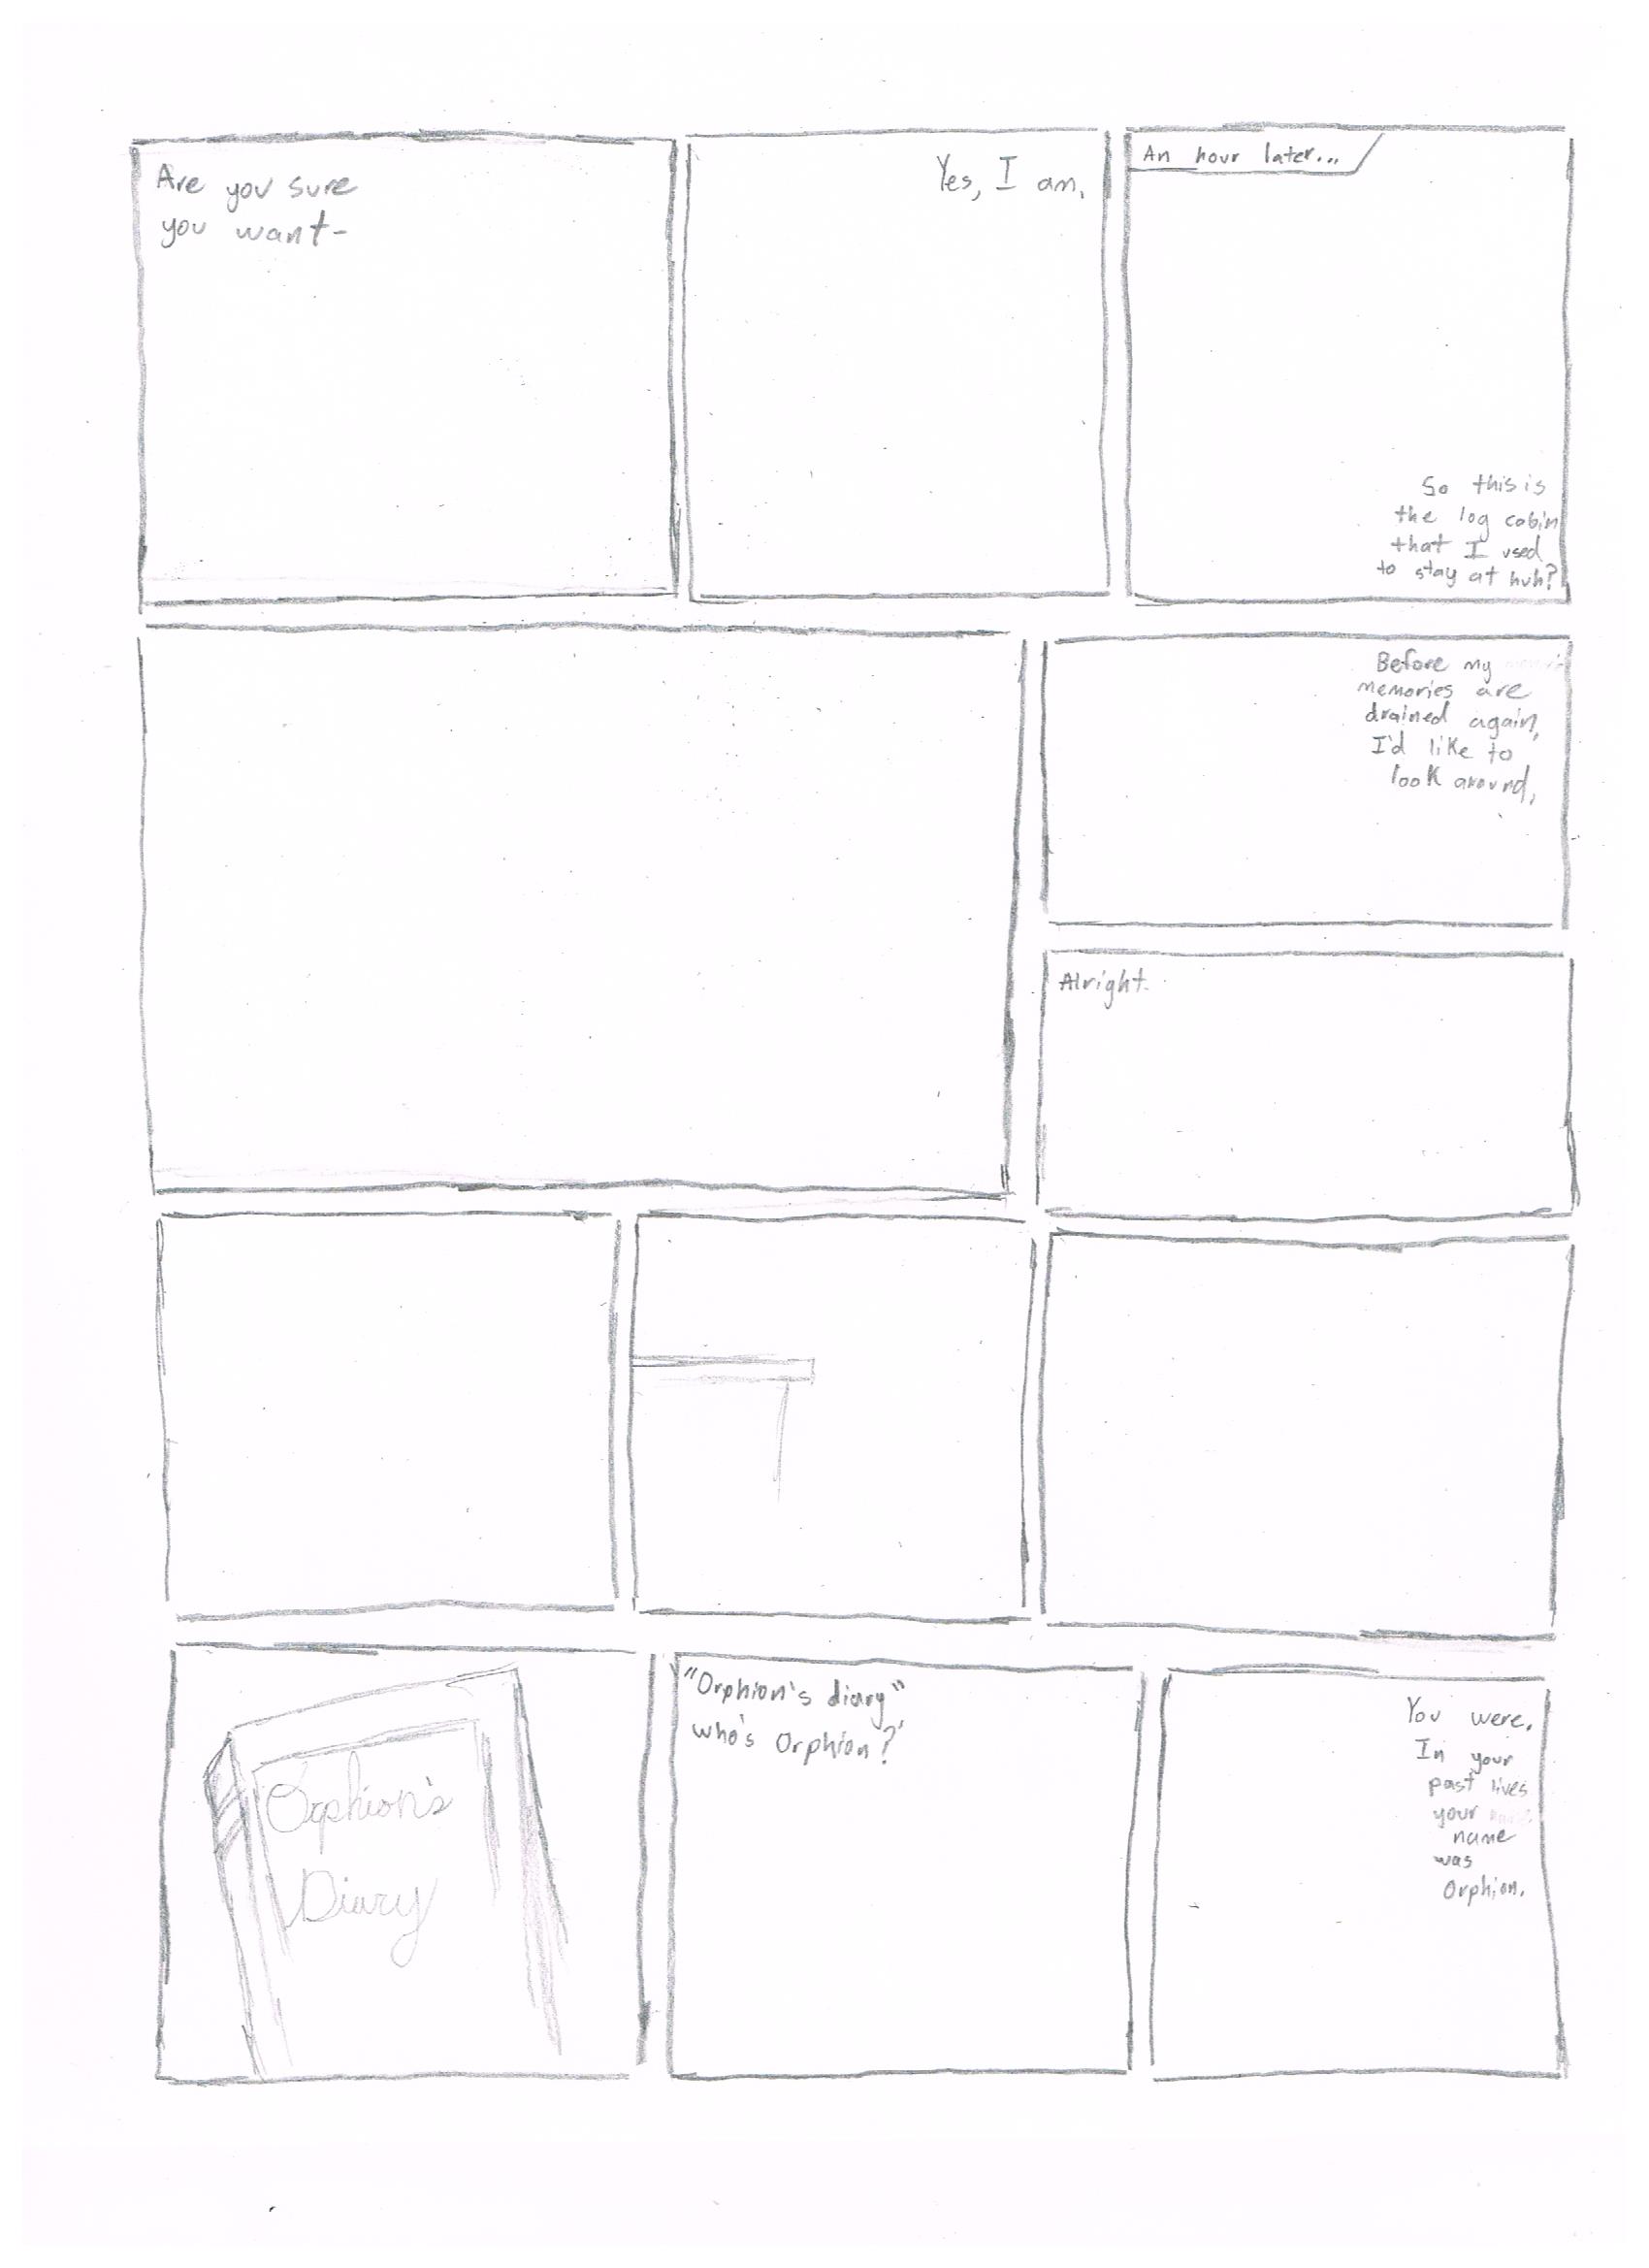 Are you sure
you want-
Yes, I am.
An hour later...
So this is
the log cabin
that I used
to stay at huh?
Before my
memories are
drained again,
I'd like to
look around.
Alright.
Orphion's
Diary
"Orphion's diary"
who's Orphion?
You were.
In your
past lives
your
name
was
Orphion.